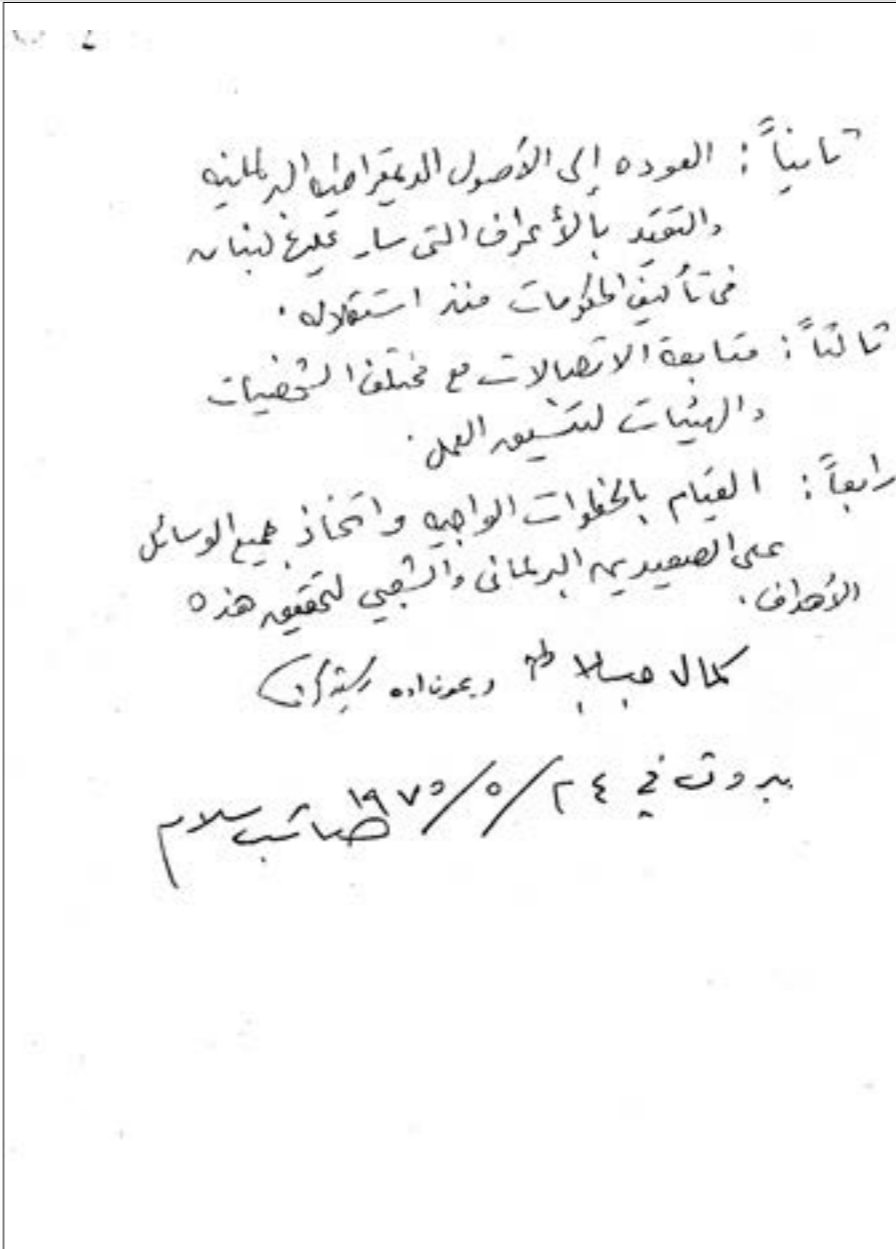 ثانياً: العوده إلى الأصول الديمقراطيه البرلمانيه
والتقيد بالأعراف التي سار عليها لبنان
في تأليف الحكومات منذ استقلاله.
ثالثاً: متابعة الاتصالات مع مختلف الشخصيات
والهيئات لتنسيق العمل.
رابعاً: القيام بالخطوات الواجبه واتخاذ جميع الوسائل
على الصعيدين البرلماني والشعبي لتحقيق هذه
الأهداف.
كمال جنبلاط ريمون اده رشيد كرامي
بيروت في ٢٤/٥/١٩٧٥
صائب سلام